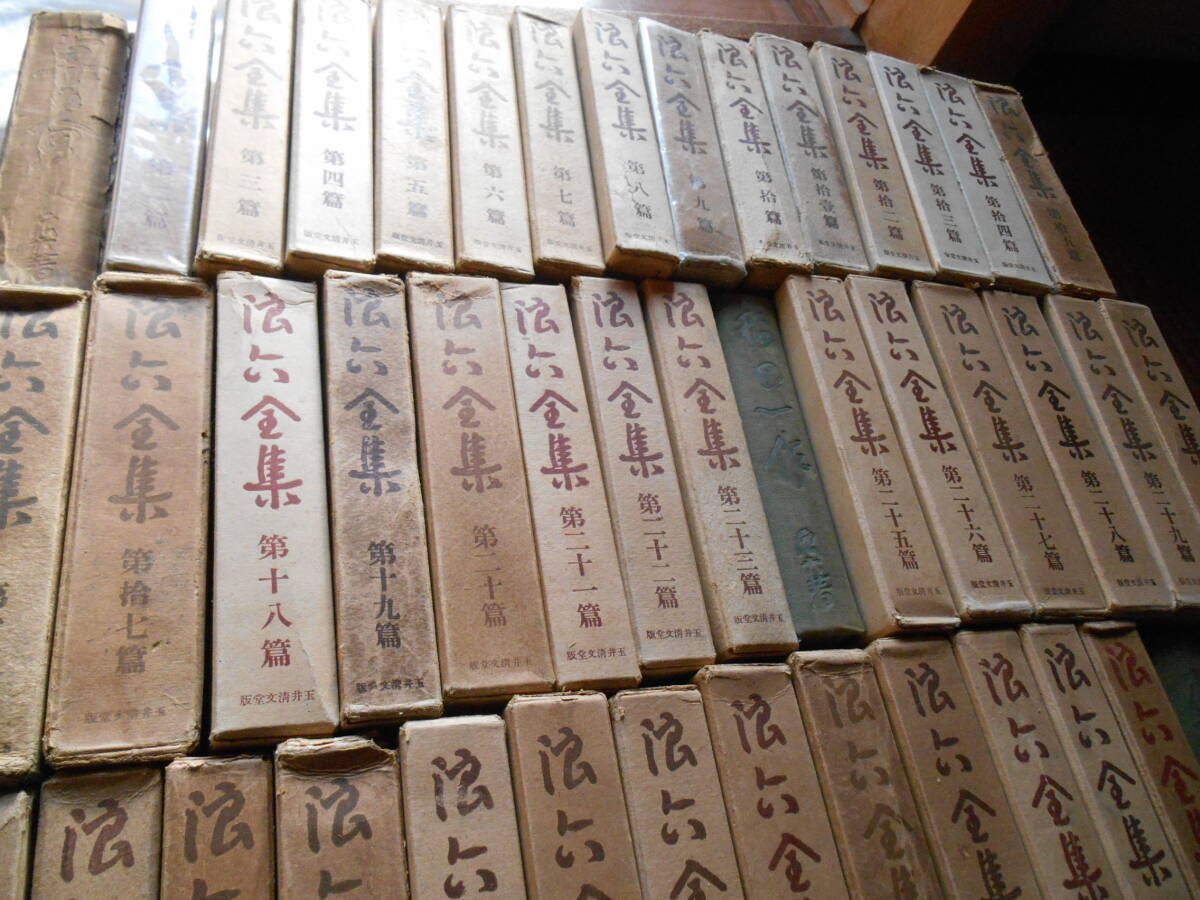 浪六全集 第三篇 玉井清文堂版
浪六全集 第四篇 玉井清文堂版
浪六全集 第五篇 玉井清文堂版
浪六全集 第六篇 玉井清文堂版
浪六全集 第七篇 玉井清文堂版
浪六全集 第八篇 玉井清文堂版
浪六全集 第九篇 玉井清文堂版
浪六全集 第拾篇 玉井清文堂版
浪六全集 第拾壹篇 玉井清文堂版
浪六全集 第拾二篇 玉井清文堂版
浪六全集 第拾三篇 玉井清文堂版
浪六全集 第拾四篇 玉井清文堂版
浪六全集 第拾五篇 玉井清文堂版
浪六全集
浪六全集 第拾七篇 玉井清文堂版
浪六全集 第十八篇 玉井清文堂版
浪六全集 第十九篇 玉井清文堂版
浪六全集 第二十篇 玉井清文堂版
浪六全集 第二十一篇 玉井清文堂版
浪六全集 第二十二篇 玉井清文堂版
浪六全集 第二十三篇 玉井清文堂版
浪六全集 第二十五篇 玉井清文堂版
浪六全集 第二十六篇 玉井清文堂版
浪六全集 第二十七篇 玉井清文堂版
浪六全集 第二十八篇 玉井清文堂版
浪六全集 第二十九篇 玉井清文堂版
浪六全集
浪
浪六
浪六
浪六
浪六全
浪六全
浪六全
浪六全集
浪六全
浪六全集
浪六全集
浪六全集